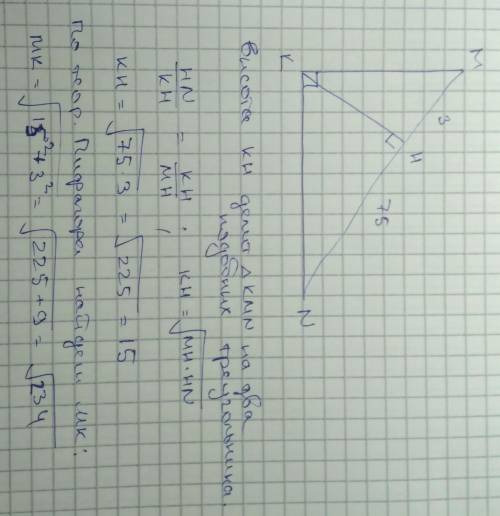 K
M
3
H
75
N
Высота KH делит △ KMN на два
подобных треугольника.
HN/KH = KH/MH ; KH = √MH·HN
KH = √75·3 = √225 = 15
По теор. Пифагора найдем MK:
MK = √15²+3² = √225+9 = √234